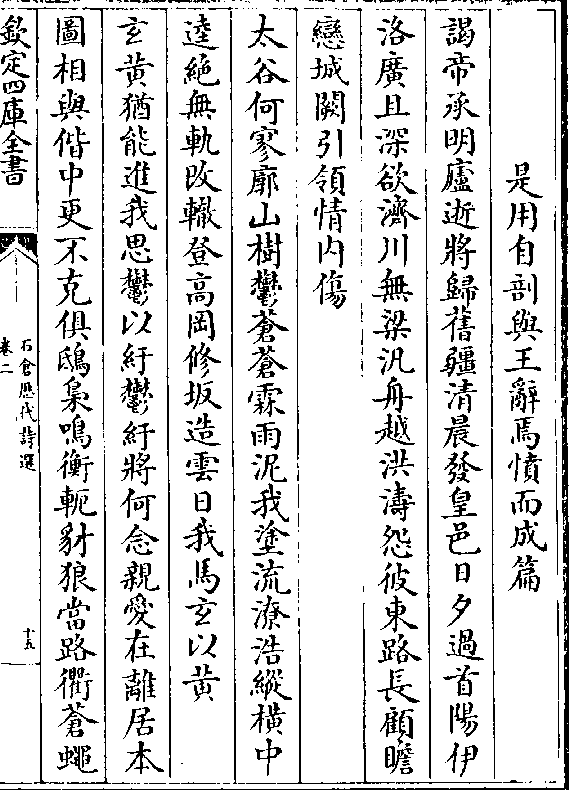 是用自剖與王辭焉憤而成篇
謁帝承明廬逝將歸舊疆清晨發皇邑日夕過首陽伊
洛廣且深欲濟川無梁汎舟越洪濤怨彼東路長顧瞻
戀城闕引領情内傷
太谷何寥廓山樹鬱蒼蒼霖雨泥我塗流潦浩縱橫中
逵絶無軌改轍登高岡修坂造雲日我馬玄以黄
玄黄猶能進我思鬱以紆鬱紆將何念親愛在離居本
圖相與偕中更不克俱鴟梟鳴衡軛豺狼當路衢蒼蠅
欽定四庫全書
石倉歴代詩選
卷二
十五